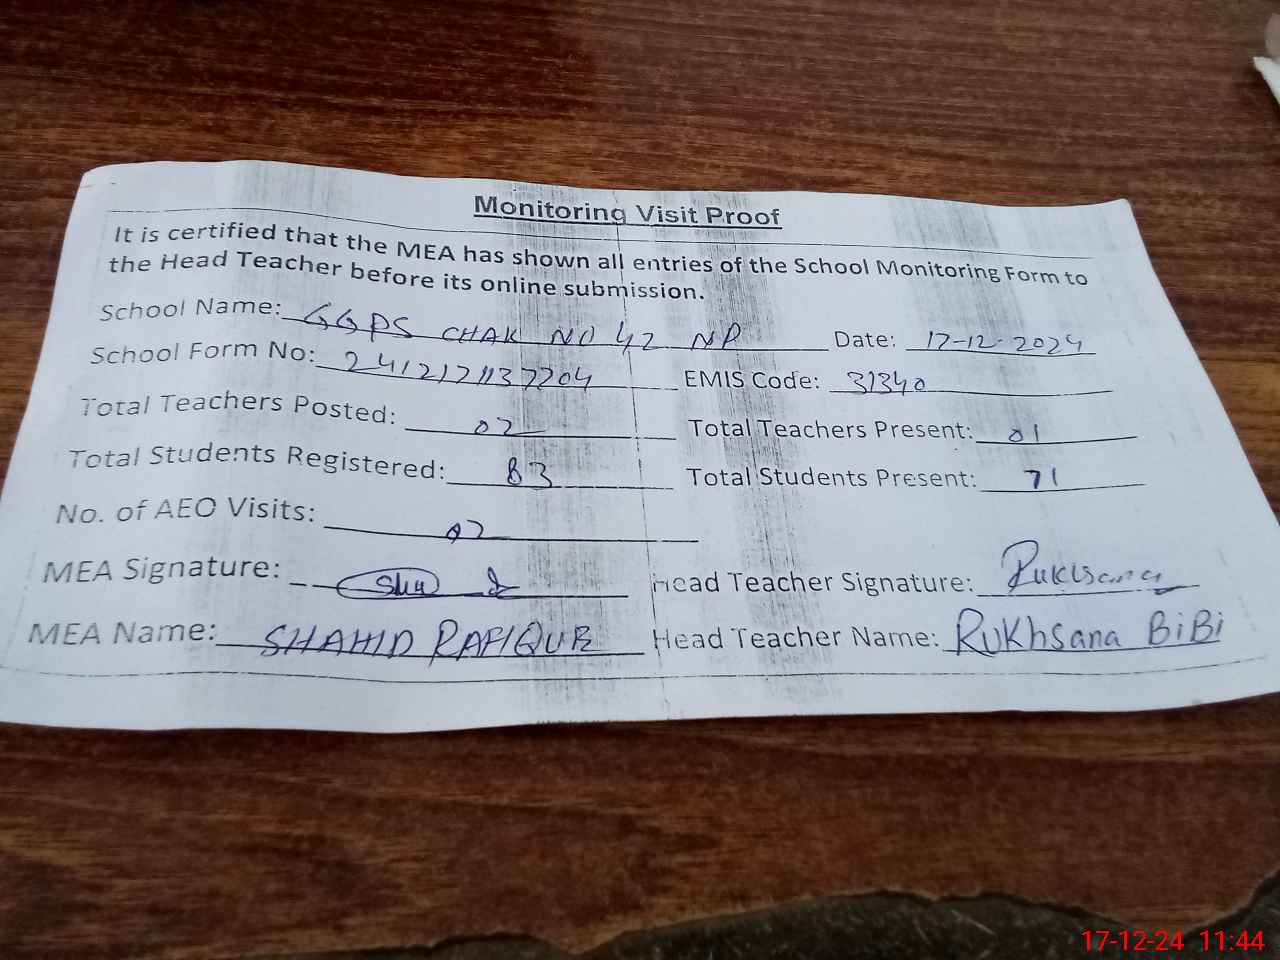 Monitoring Visit Proof
It is certified that the MEA has shown all entries of the School Monitoring Form to
the Head Teacher before its online submission.
School Name: GGPS CHAK NO 42 NP Date: 17-12-2024
School Form No: 2412171137204 EMIS Code: 31340
Total Teachers Posted: 02 Total Teachers Present: 01
Total Students Registered: 83 Total Students Present: 71
No. of AEO Visits: 02
MEA Signature: Head Teacher Signature: Rukhsana
MEA Name: SHAHID RAFIQUE Head Teacher Name: RuKhsana BiBi
17-12-24 11:44